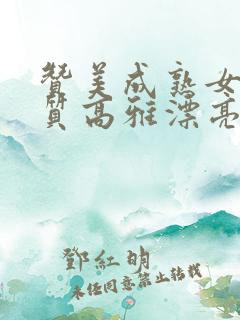 赞美成熟女
質高雅漂亮
鄧紅明
未经同意禁止转载